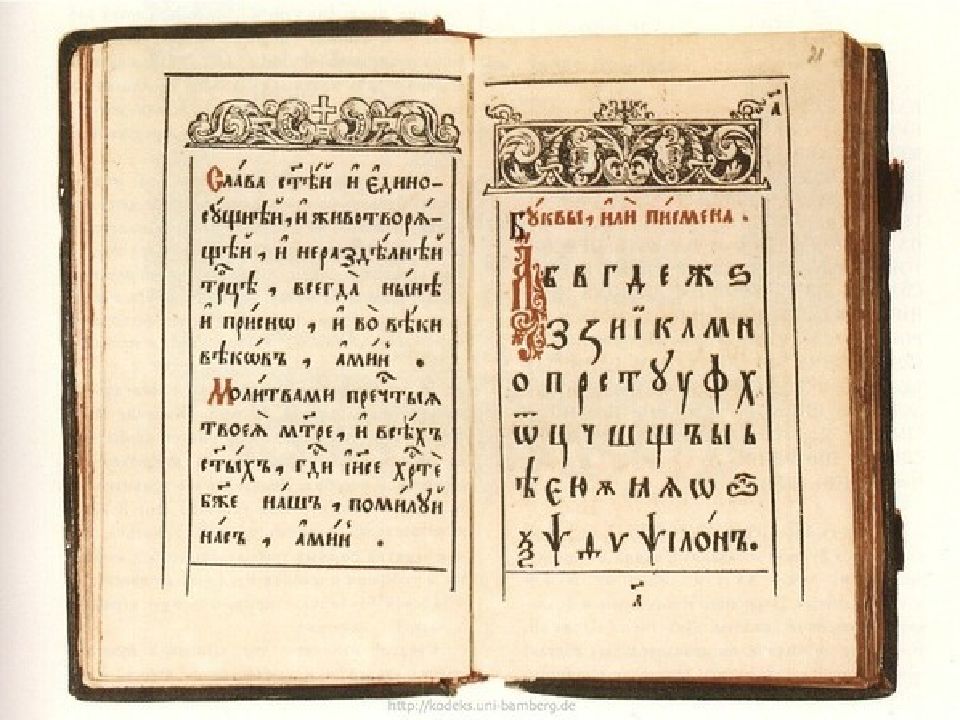 Сла́ва ст҃ѣ́й и҆ є҆дино-
сꙋ́щнѣй, и҆ животворѧ́-
щѣй, и҆ нераздѣ́лнѣй
трⷪ҇цѣ, всегда̀ ны́нѣ
и҆ при́снѡ, и҆ во̀ вѣ́ки
вѣкѡ́въ, а҆ми́нь.
Моли́твами пречⷭ҇тыѧ
твоеѧ̀ мт҃ре, и҆ всѣ́хъ
ст҃ы́хъ, гд҇и і҆и҃се хрⷭ҇тѐ
бж҃е на́шъ, поми́лꙋй
на́съ, а҆ми́нь.
21
а҃
Бꙋ́квы, и҆лѝ пи́смена.
А б в г д е ж ѕ
з ꙁ и ї к л м н
о п р с т ꙋ у ф х
ѿ ц ч ш щ ъ ы ь
ѣ є ю ѫ ꙗ ѧ ѡ ѽ
ѯ ѱ д ѵ ѱїло́нъ.
а҃
http://kodeks.uni-bamberg.de